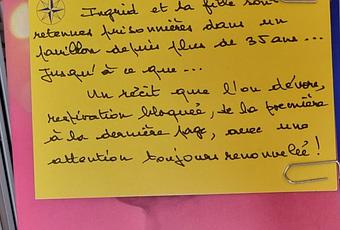 Ingrid et sa fille sont
retenues prisonnières dans un
pavillon depuis plus de 35 ans...
Jusqu'à ce que...
Un récit que l'on dévore,
respiration bloquée, de la première
à la dernière page, avec une
attention toujours renouvelée !